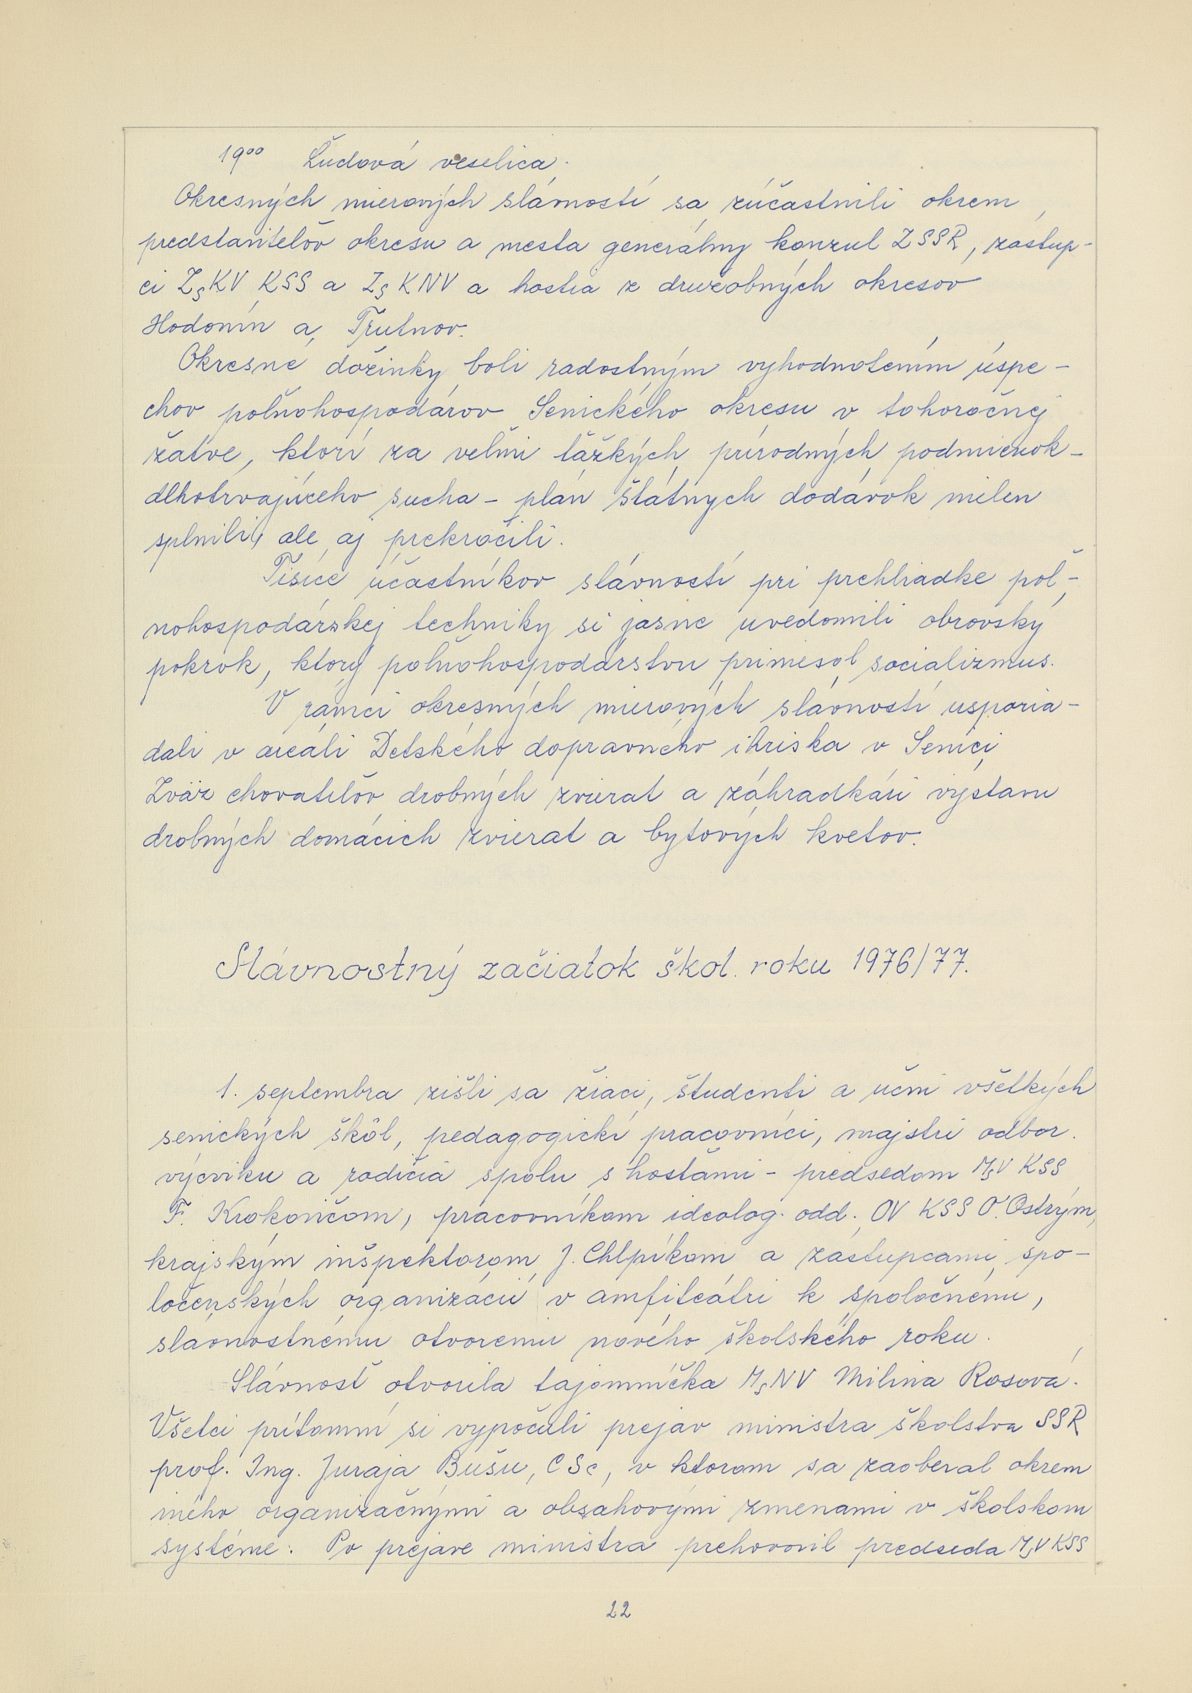 19⁰⁰ Ľudová veselica.
Okresných mierových slávností sa zúčastnili okrem
predstaviteľov okresu a mesta generálny konzul ZSSR, zástup-
ci ZsKV KSS a ZsKNV a hostia z družobných okresov
Hodonín a Trutnov.
Okresné dožinky boli radostným vyhodnotením úspe-
chov poľnohospodárov Senického okresu v tohoročnej
žatve, ktorí za veľmi ťažkých prírodných podmienok -
dlhotrvajúceho sucha - plán štátnych dodávok nielen
splnili, ale aj prekročili.
Tisíce účastníkov slávností pri prehliadke poľ-
nohospodárskej techniky si jasne uvedomili obrovský
pokrok, ktorý poľnohospodárstvu priniesol socializmus.
V rámci okresných mierových slávností usporia-
dali v areáli Detského dopravného ihriska v Senici
Zväz chovateľov drobných zvierat a záhradkári výstavu
drobných domácich zvierat a bytových kvetov.
Slávnostný začiatok škol. roku 1976/77.
1. septembra zišli sa žiaci, študenti a učni všetkých
senických škôl, pedagogickí pracovníci, majstri odbor.
výcviku a rodičia spolu s hosťami - predsedom MsV KSS
F. Krokavičom, pracovníkom ideolog. odd. OV KSS O. Ostrým,
krajským inšpektorom J. Chlpíkom a zástupcami spo-
ločenských organizácií v amfiteátri k spoločnému,
slávnostnému otvoreniu nového školského roku.
Slávnosť otvorila tajomníčka MsNV Milina Rosová.
Všetci prítomní si vypočuli prejav ministra školstva SSR
prof. Ing. Juraja Bušu, CSc, v ktorom sa zaoberal okrem
iného organizačnými a obsahovými zmenami v školskom
systéme. Po prejave ministra prehovoril predseda MsV KSS
22